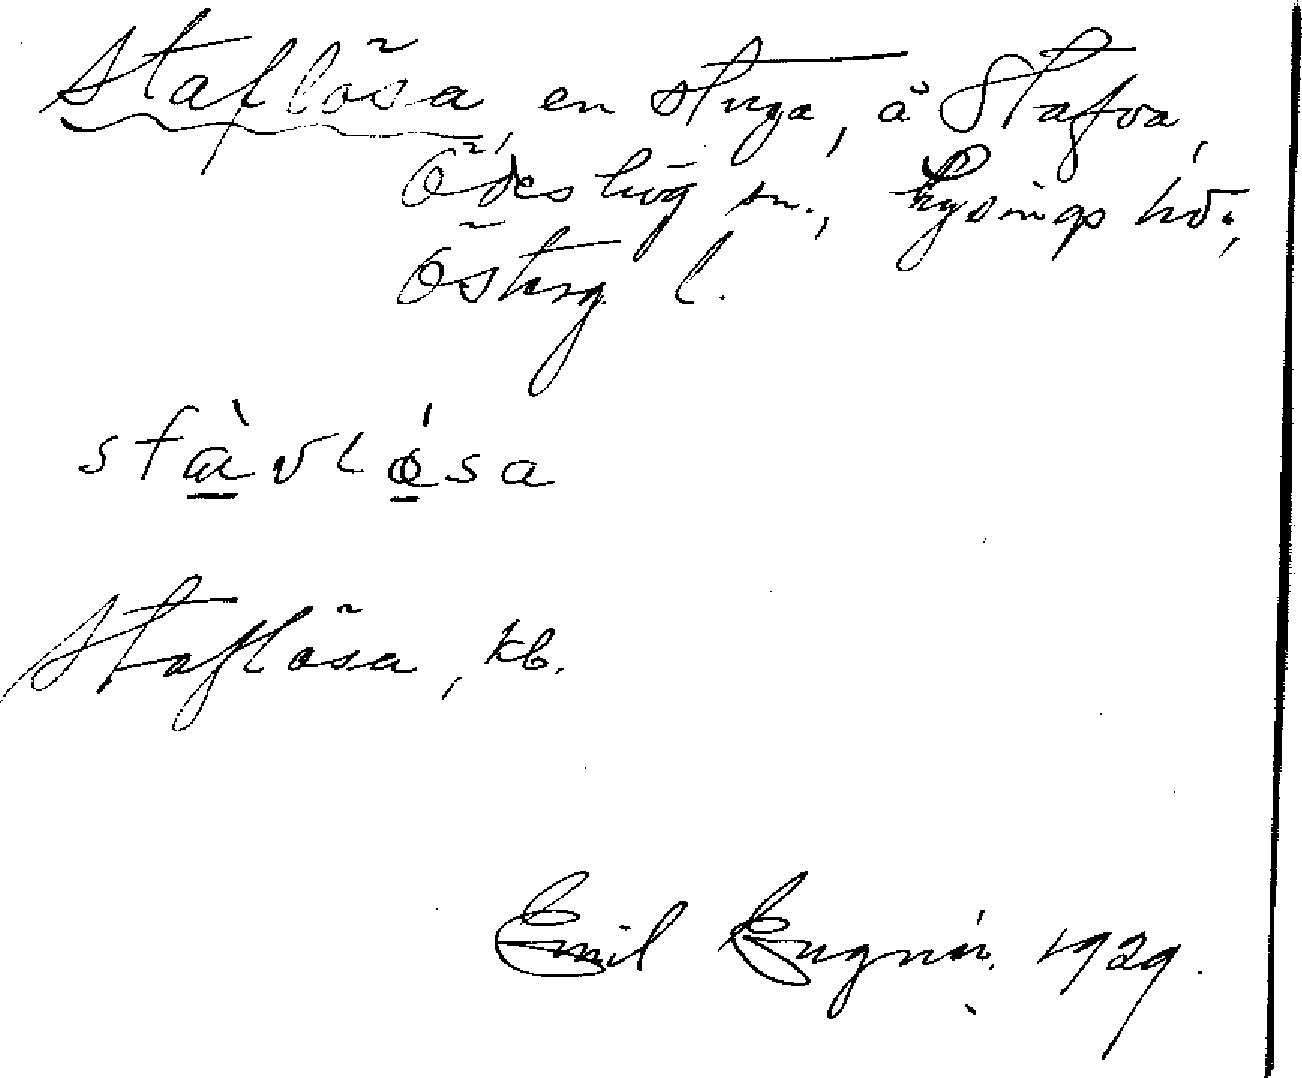 Staflösa, en stuga, å Stafva,
Ödeshög sn., Lysings hd.,
Österg l.
stàvlǿsa
Staflösa, kb.
Emil 1929.